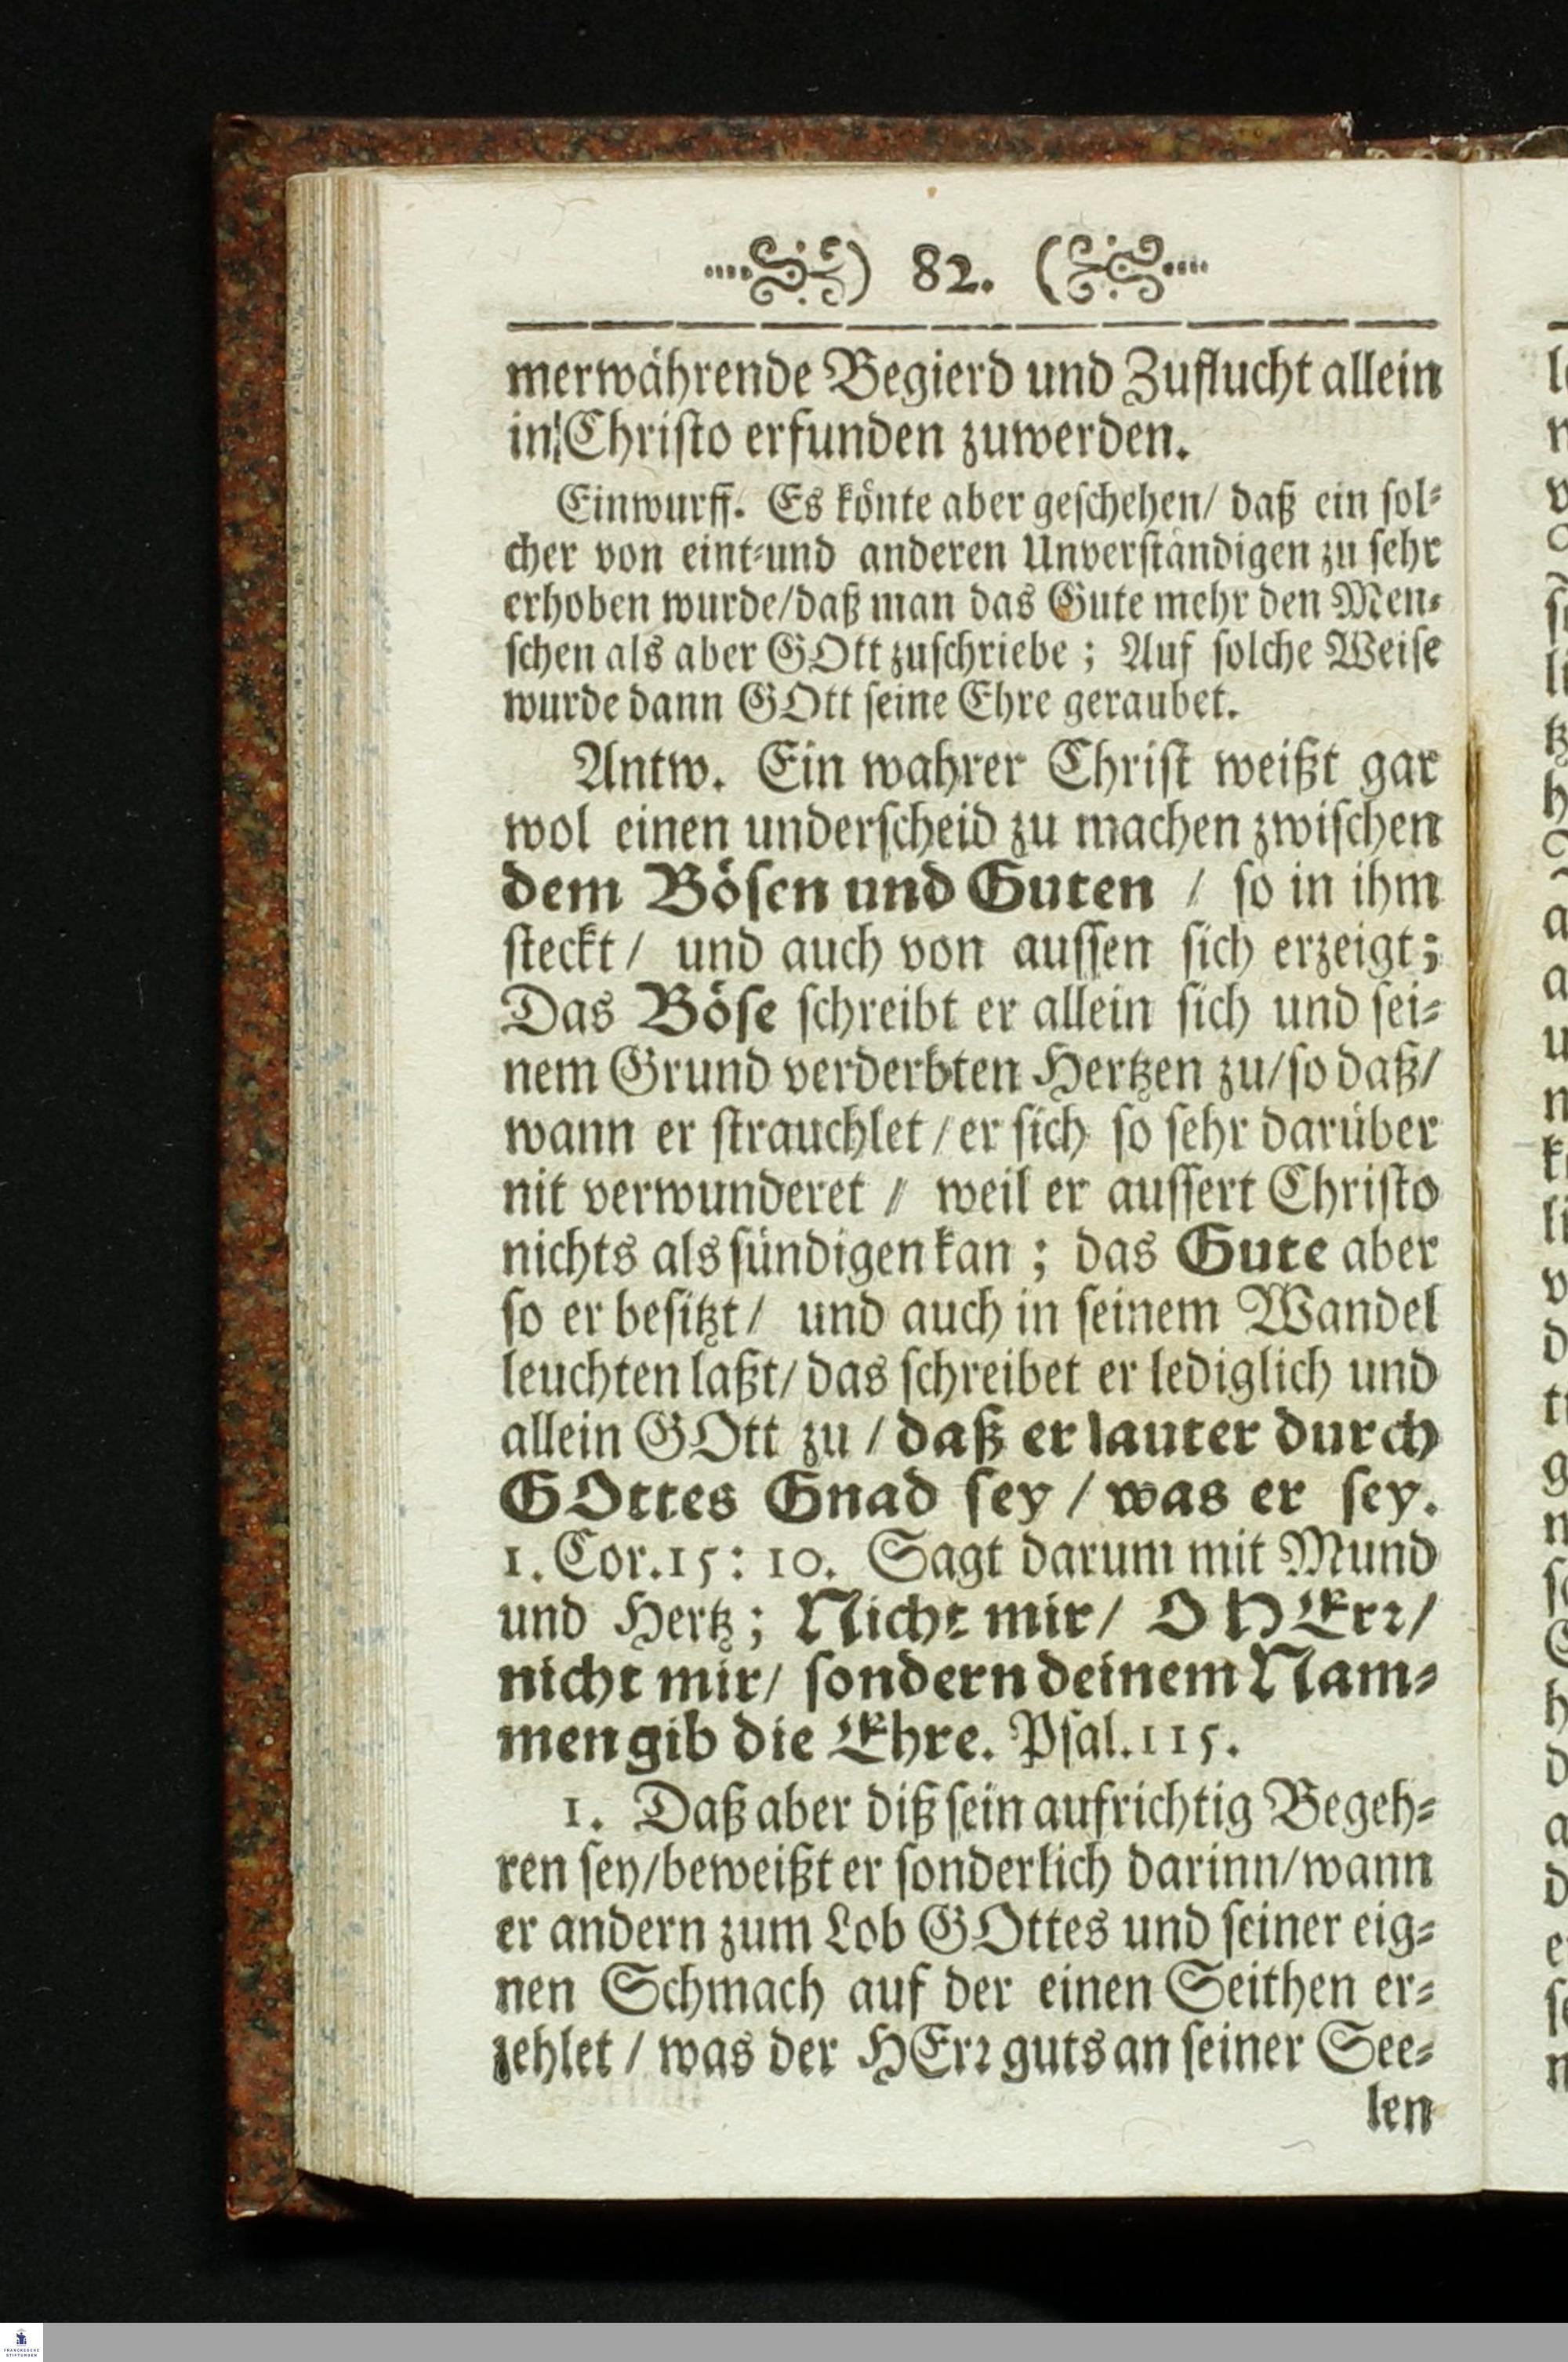 ) 82. (
merwährende Begierd und Zuflucht allein
in Christo erfunden zuwerden.
Einwurff. Es könte aber geschehen/ daß ein sol-
cher von eint-und anderen Unverständigen zu sehr
erhoben wurde/daß man das Gute mehr den Men-
schen als aber GOtt zuschriebe; Auf solche Weise
wurde dann GOtt seine Ehre geraubet.
Antw. Ein wahrer Christ weißt gar
wol einen underscheid zu machen zwischen
dem Bösen und Guten / so in ihm
steckt/ und auch von aussen sich erzeigt;
Das Böse schreibt er allein sich und sei-
nem Grund verderbten Hertzen zu/so daß/
wann er strauchlet/er sich so sehr darüber
nit verwunderet / weil er aussert Christo
nichts als sündigen kan; das Gute aber
so er besitzt/ und auch in seinem Wandel
leuchten laßt/das schreibet er lediglich und
allein GOtt zu / daß er lauter durch
GOttes Gnad sey / was er sey.
1. Cor.15: 10. Sagt darum mit Mund
und Hertz; Nicht mir/ O HErr/
nicht mir/ sondern deinem Nam-
men gib die Ehre. Psal.115.
1. Daß aber diß sein aufrichtig Begeh-
ren sey/beweißt er sonderlich darinn/wann
er andern zum Lob GOttes und seiner eig-
nen Schmach auf der einen Seithen er-
zehlet / was der HErr guts an seiner See-
len
FRANCKESCHE
STIFTUNGEN